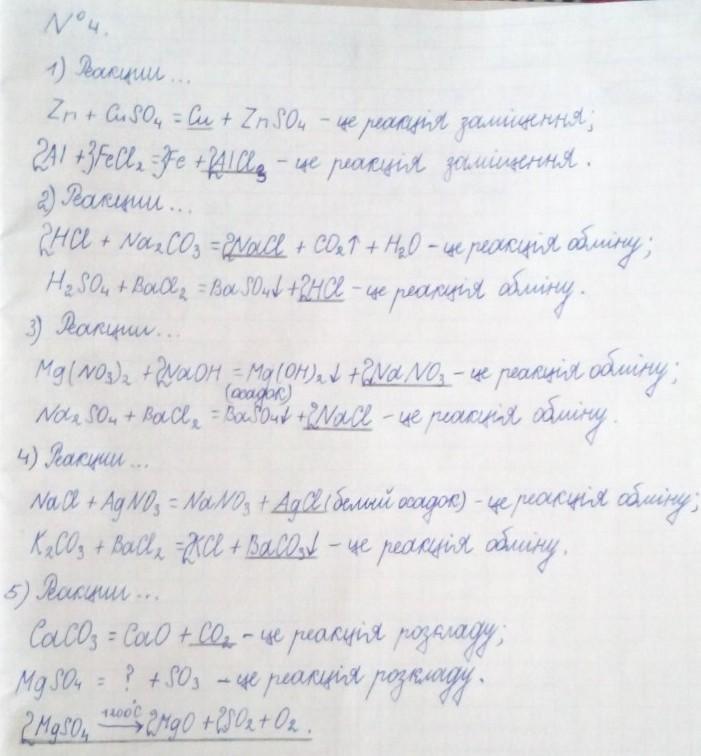 N°4.
1) Реакции...
Zn + CuSO₄ = Cu + ZnSO₄ - це реакція заміщення;
2Al + 3FeCl₂ = 3Fe + 2AlCl₃ - це реакція заміщення.
2) Реакции...
2HCl + Na₂CO₃ = 2NaCl + CO₂↑ + H₂O - це реакція обміну;
H₂SO₄ + BaCl₂ = BaSO₄↓ + 2HCl - це реакція обміну.
3) Реакции...
Mg(NO₃)₂ + 2NaOH = Mg(OH)₂↓ + 2NaNO₃ - це реакція обміну;
(осадок)
Na₂SO₄ + BaCl₂ = BaSO₄↓ + 2NaCl - це реакція обміну.
4) Реакции...
NaCl + AgNO₃ = NaNO₃ + AgCl (белый осадок) - це реакція обміну;
K₂CO₃ + BaCl₂ = 2KCl + BaCO₃↓ - це реакція обміну.
5) Реакции...
CaCO₃ = CaO + CO₂ - це реакція розкладу;
MgSO₄ = ? + SO₃ - це реакція розкладу.
2MgSO₄ 1200°C→ 2MgO + 2SO₂ + O₂.